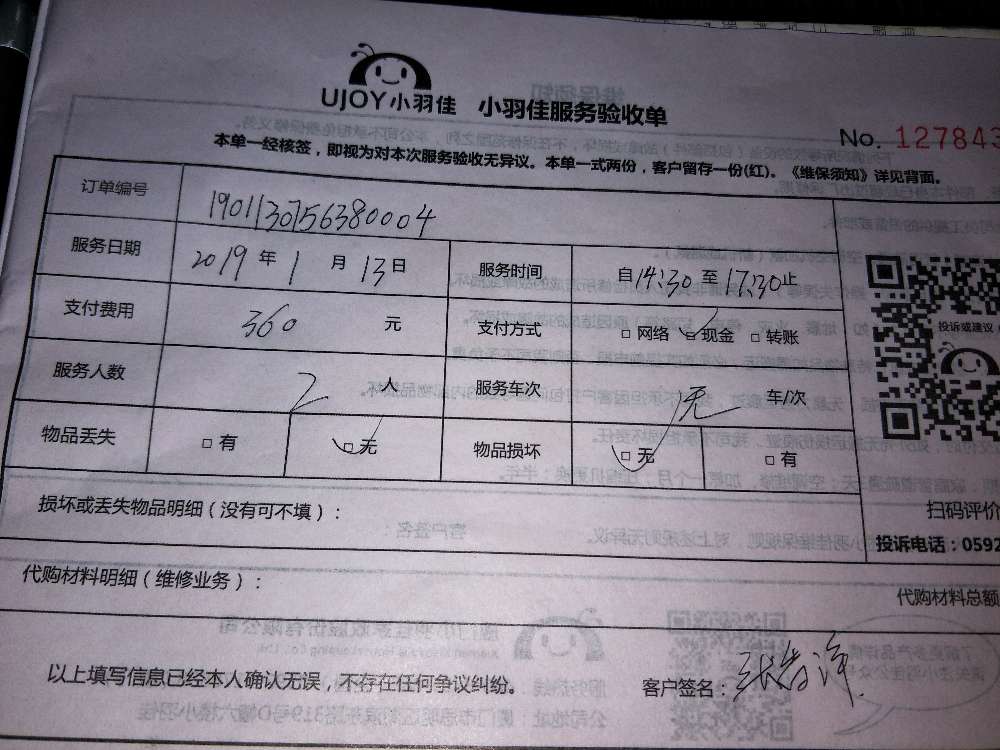 UJOY小羽佳 小羽佳服务验收单
No. 127843
本单一经核签，即视为对本次服务验收无异议。本单一式两份，客户留存一份(红)。《维保须知》详见背面。
订单编号 1901130756380004
服务日期 2019 年 1 月 13 日 服务时间 自14:30至17:30止
支付费用 360 元 支付方式 □ 网络 □ 现金 □ 转账
投诉或建议
服务人数 2 人 服务车次 无 车/次
物品丢失 □ 有 □ 无 物品损坏 □ 无 □ 有
损坏或丢失物品明细（没有可不填）：
扫码评价
投诉电话：0592
代购材料明细（维修业务）：
代购材料总额
以上填写信息已经本人确认无误，不存在任何争议纠纷。
客户签名：